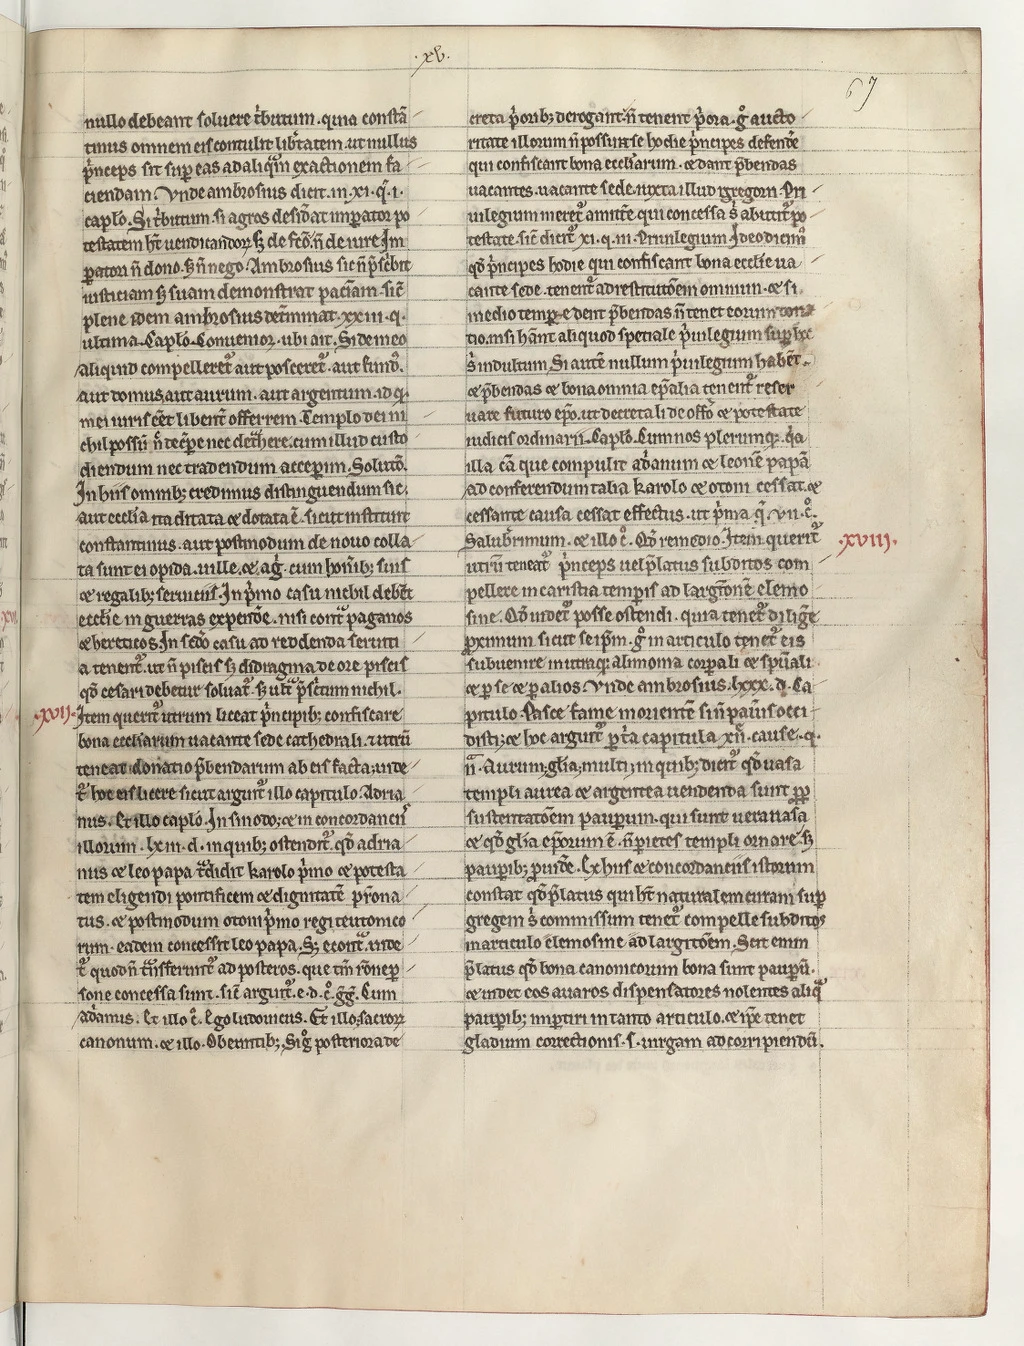 ·xv·
67
nullo debeant soluere t̾butum. quia constã
tinus omnem eis contulit lib̾tatem. ut nullus
p̾nceps sit sup eas ad aliq̃m exactionem fa
ciendam. Vnde ambrosius dicit. in. xi. q̃. i.
caplo. Si t̾butum. si agros desid̾at impator po
testatem ht̃ uendicandoꝝ sꝫ de fc̃o. ñ de iure Im
patori ñ dono. sꝫ ñ nego. Ambrosius sic ñ p̃sc̾bit
iusticiam sꝫ suam demonstrat paciam. sic̃
plene idem ambrosius det̾minat. xxiii. q.
ultima. Caplo. Conuenior. ubi ait. Si de meo
aliquid compelleret᷑ aut posceret᷑. aut fund᷒.
aut domus. aut aurum. aut argentum. id qꝫ
mei iuris eẽt libent̾ offerrem. Templo dei ni
chil possũ ñ dec̾pe nec det̾here. cum illud custo
diendum nec tradendum acceperim. Solutõ.
In hiis omnibꝫ credimus distinguendum sic.
aut ecclia ita ditata et dotata ẽ. sicut instituit
constantinus. aut postmodum de nouo colla
ta sunt ei opida. uille. et ag̾. cum hoĩbꝫ suis
et regalibꝫ seruiciis. In p̾mo casu nichil debẽt
ecclie in guerras expende. nisi contᷓ paganos
et hereticos. In sedo casu ad reddenda seruiti
a tenent᷑. ut ñ piscis sꝫ didragma de ore piscis
qđ cesari debetur soluat᷑. sꝫ ultᷓ p̃sc̾tum nichil.
·xvii· Item querit᷑ utrum liceat p̾ncipibꝫ confiscare
bona eccliarum uacante sede cathedrali. et utrũ
teneat donatio p̃bendarum ab eis facta. unde
t᷑ hoc eis licere sicut arguit᷑ illo capitulo. Adria
nus. Et illo caplo. In sinodo. et in concordanciis
illorum. lxiii. d. in quibꝫ ostendit᷑. qđ adria
nus et leo papa t̾didit karolo p̾mo et potesta
tem eligendi pontificem et dignitatẽ p̾rona
tus. et postmodum otoni p̾mo regi teutonico
rum. eadem concessit leo papa. Sꝫ econt᷑. unde
t᷑ quod ñ t̾nsferunt᷑ ad posteros. que tm̃ rõne p
sone concessa sunt. sic̃ arguit᷑. e. d. c̃. gg̃. Cum
adrianus. Et illo c̃. Ego ludouicus. Et illo. sacroꝝ
canonum. et illo. Obeuntibꝫ. Si g̾ posteriora de
creta p̾oribꝫ derogant. ñ tenent p̾ora. g̾ aucto
ritate illorum ñ possunt se hodie p̾ncipes defende
qui confiscant bona eccliarum. et dant p̃bendas
uacantes. uacante sede. iuxta illud gregorii. Pri
uilegium meret᷑ amitte qui concessa s̾ abutit᷑ po
testate. sic̃ dicit᷑ xi. q. iii. Priuilegium. Ideo dicim᷒
qđ p̾ncipes hodie qui confiscant bona ecclie ua
cante sede. tenent᷑ ad restitutõem omnium. et si
medio tempe dent p̃bendas ñ tenet eorum dona
tio. nisi hãnt aliquod speciale p̾uilegium sup hoc
s̾ indultum. Si autẽ nullum p̾uilegium habẽt.
et p̃bendas et bona omnia epalia tenent᷑ reser
uare futuro epo. ut decretali de offo et potestate
iudicis ordinarii. Caplo. Cum nos plerumqꝫ. q̾a
illa cã que compulit adrianum et leonẽ papã
ad conferendum talia karolo et otoni cessat. et
cessante causa cessat effectus. ut p̾ma q̃. vii. c̃.
Salub̾rimum. et illo c̃. Qđ pro remedio. Item querit᷑ ·xviii·
utrũ teneat᷑ p̾nceps uel p̃latus subditos com
pellere in caristia temporis ad largitõnẽ elemo
sine. Qđ uidet᷑ posse ostendi. quia tenet᷑ dilige
proximum sicut se ipm̃. g̾ in articulo tenet᷑ eis
subuenire in utraqꝫ alimonia corpali et spũali
et per se et per alios. Vnde ambrosius. lxxx. d. Ca
pitulo. Pasce fame morientẽ si ñ pauis occi
disti. et hoc arguit᷑ p t̾a capitula xii. cause. q.
ii. Aurum. glia. multi. in quibꝫ dicit᷑ qđ uasa
templi aurea et argentea uendenda sunt pp
sustentatõem pauperum. qui sunt uera uasa
et qđ glia eporum ẽ. ñ parietes templi ornare. sꝫ
pauperibꝫ prouide. Ex hiis et concordanciis istorum
constat qđ p̃latus qui ht̃ naturalem curam sup
gregem s̾ commissum tenet᷑ compelle subditos
in articulo elemosine ad largitõem. Scit enim
p̃latus qđ bona canonicorum bona sunt pauperũ.
et uidet eos auaros dispensatores nolentes aliq̾
pauperibꝫ impertiri in tanto articulo. et ipe tenet
gladium correctionis. s. uirgam ad corripiendũ.